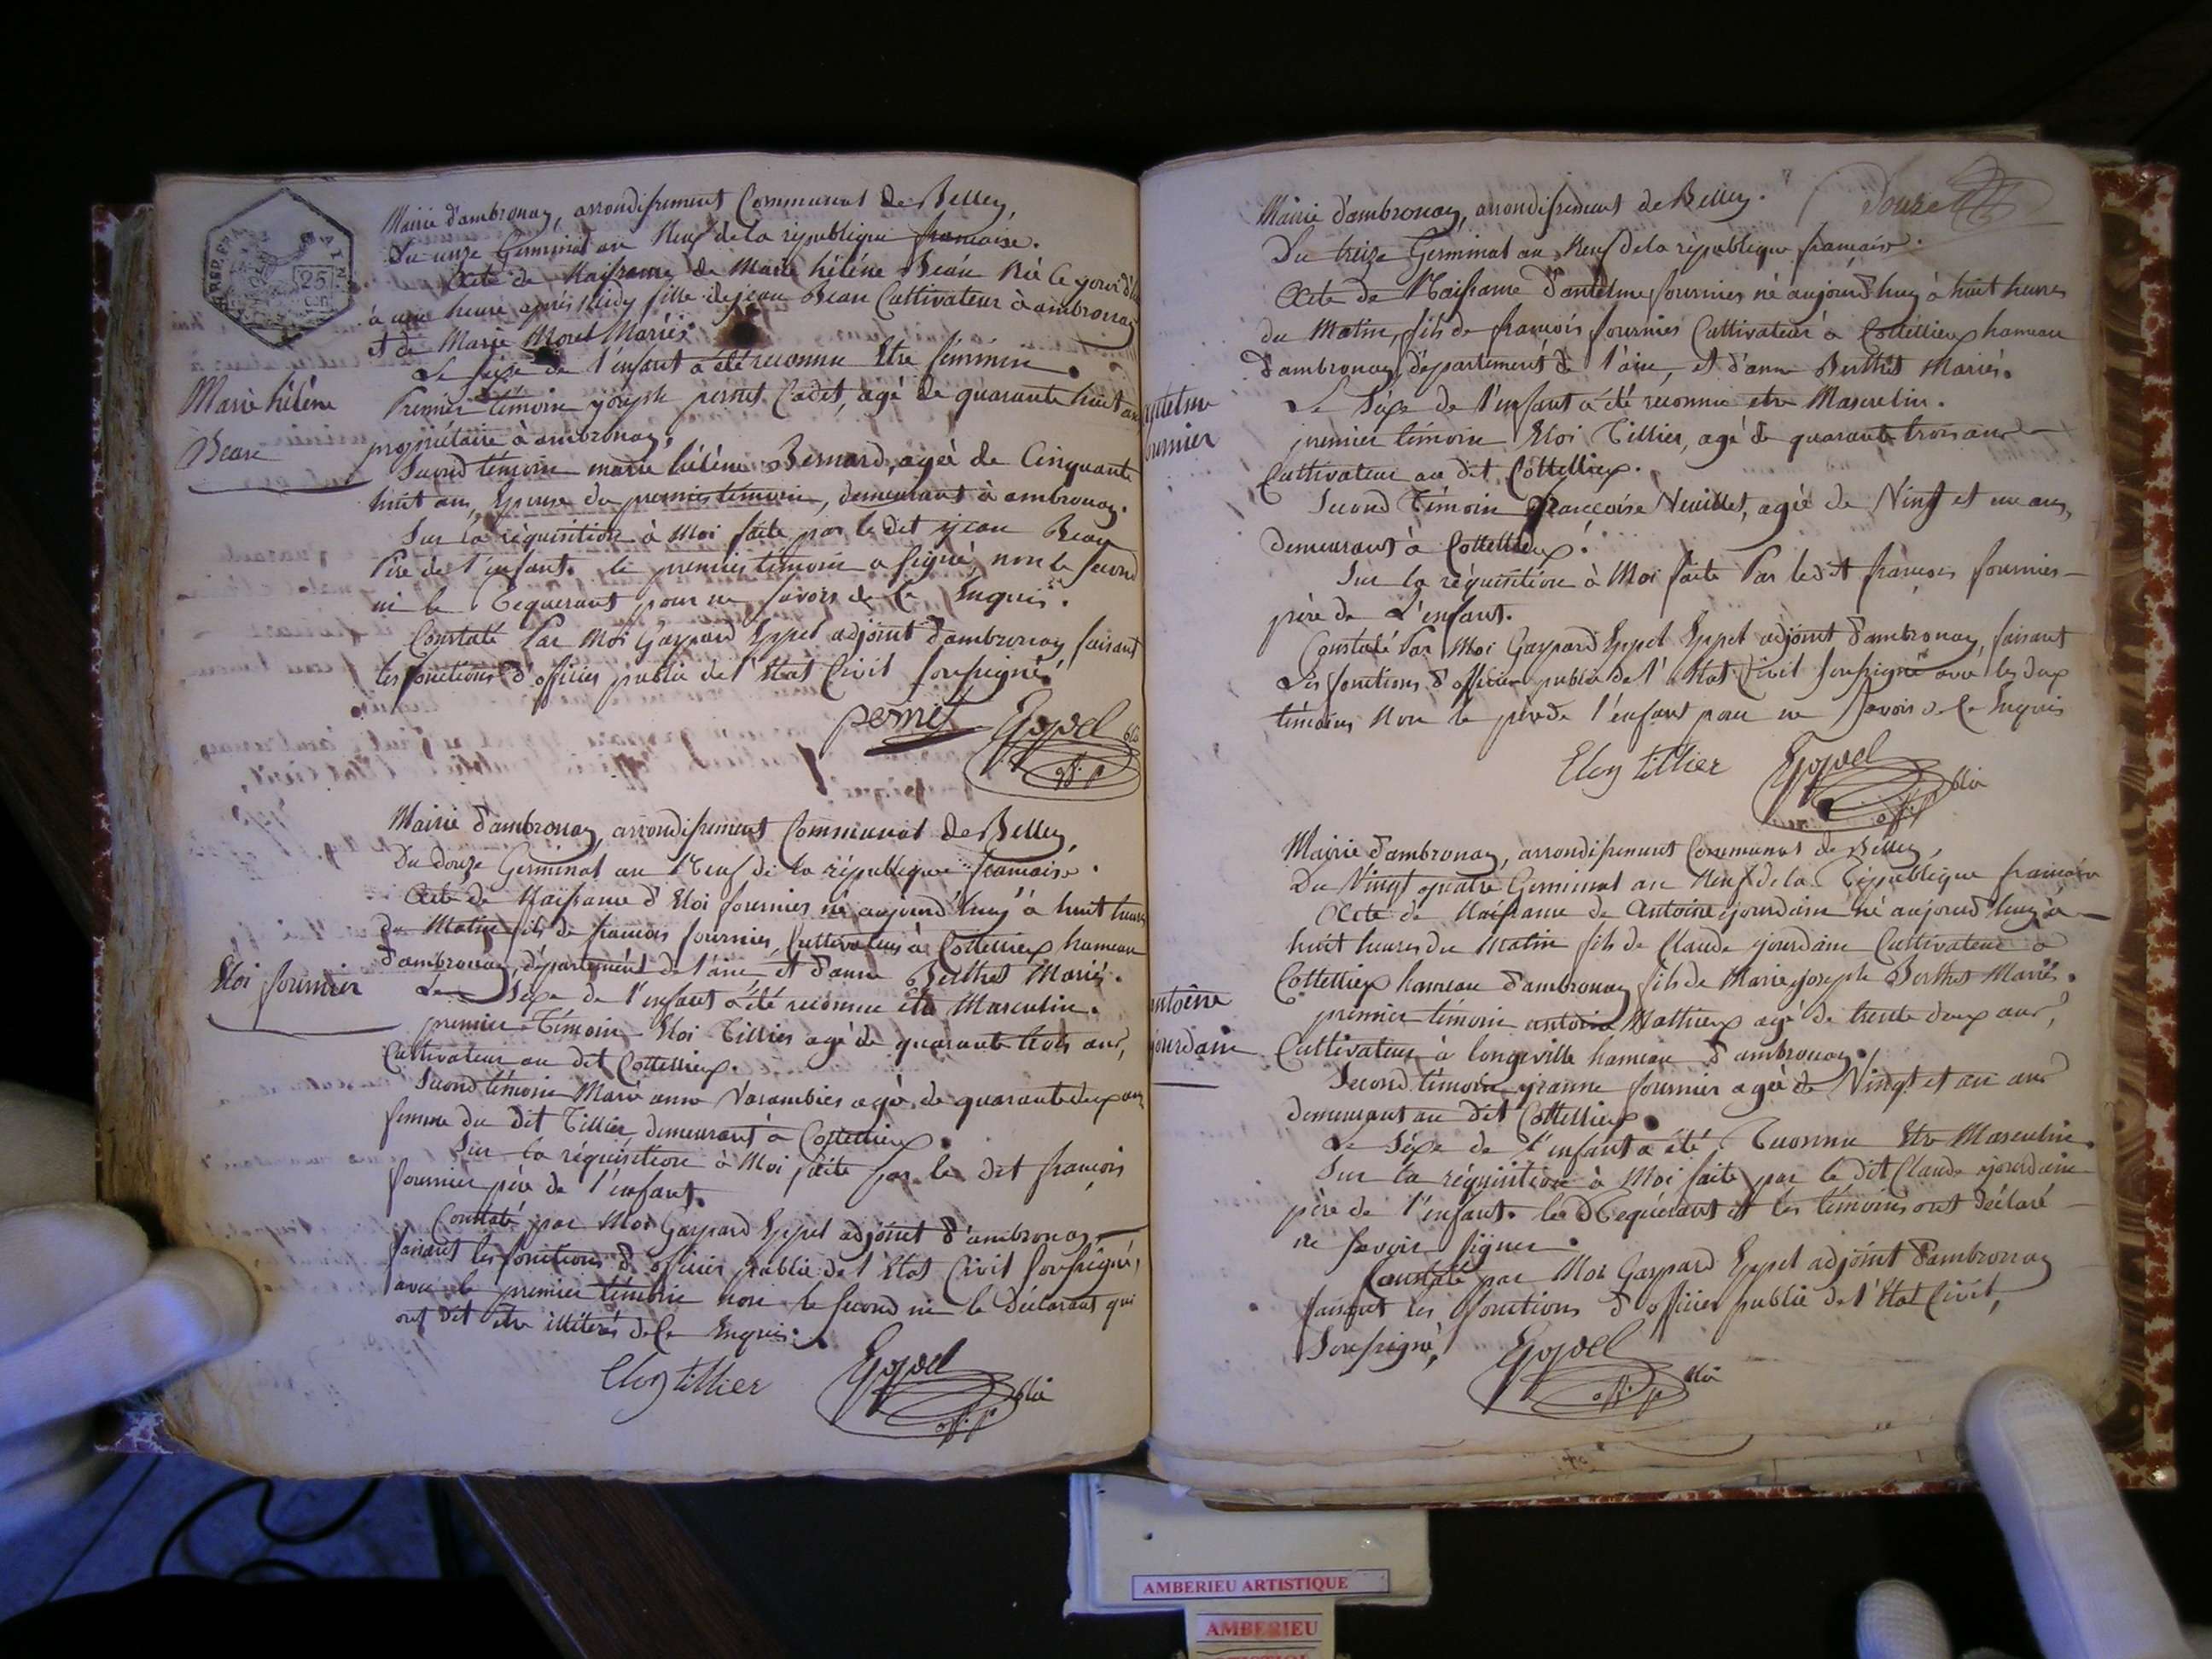 REP. FRA.
25
cen
Mairie d'ambronay, arrondissement Communal de Belley,
Du unze Germinal an Neuf de la république française.
Acte de Naissance de Marie hélène Beau Né Ce jourd'huy
à une heure après Midy fille de jean Beau Cultivateur à ambronay
et de Marie Morel Mariés
Le sexe de l'enfant a été reconnu Etre féminin.
Marie hélène
Beau
Premier témoin joseph pernet Cadet, agé de quarante huit ans
propriétaire à ambronay,
Second témoin marie hélène Bernard, agée de Cinquante
huit ans, Epouse du premier témoin, demeurant à ambronay.
Sur la réquisition à Moi faite par le dit jean Beau
Père de l'enfant. le premier témoin a signé, non le second
ni le Requerant pour ne savoir de ce Enquis.
Constaté Par Moi Gaspard Eppel adjoint d'ambronay faisant
les fonctions d'officier public de l'Etat Civil soussigné.
pernet Eppel
off. p
Mairie d'ambronay, arrondissement Communal de Belley,
Du douze Germinal an Neuf de la république française.
Acte de Naissance d'Eloi fournier né aujourd'huy à huit heures
du Matin fils de françois fournier, Cultivateur à Cottellieux hameau
d'ambronay, département de l'ain, et d'anne Berthet Mariés.
Eloi fournier
Le Sexe de l'enfant a été reconnu etre Masculin.
premier Témoin Eloi Tillier agé de quarante trois ans,
Cultivateur au dit Cottellieux.
Second témoin Marie anne Varambier agée de quarante deux ans,
femme du dit Tillier demeurant à Cottellieux.
Sur la réquisition à Moi faite par le dit françois
fournier père de l'enfant.
Constaté par Moi Gaspard Eppel adjoint d'ambronay
faisant les fonctions d'officier public de l'Etat Civil soussigné,
avec le premier témoin non le second ni le déclarant qui
ont dit etre illitérés de ce Enquis.
Eloy tillier Eppel
off. p
Douze
Mairie d'ambronay, arrondissement de Belley.
Du treize Germinal an Neuf de la république française.
Acte de Naissance d'antelme fournier né aujourd'huy à huit heures
du Matin, fils de françois fournier Cultivateur à Cottellieux hameau
d'ambronay, département de l'ain, et d'anne Berthet Mariés.
antelme
fournier
Le Séxe de l'enfant a été reconnu etre Masculin.
premier témoin Eloi Tillier, agé de quarante trois ans
Cultivateur au dit Cottellieux.
Second Témoin françoise Neuillet, agée de Vingt et un ans,
demeurant à Cottellieux.
Sur la réquisition à Moi faite Par le dit françois fournier
père de L'enfant.
Constaté Par Moi Gaspard Eppel Eppel adjoint d'ambronay, faisant
Les fonctions d'officier public de l'Etat Civil soussigné avec les deux
témoins Non le père de l'enfant pour ne Savoir de ce Enquis
Eloy tillier Eppel
off. p
Mairie d'ambronay, arrondissement Communal de Belley,
Du Vingt quatre Germinal an Neuf de la République française
Acte de Naissance de Antoine jourdain né aujourd'huy à
huit heures du Matin fils de Claude jourdain Cultivateur à
Cottellieux hameau d'ambronay fils de Marie joseph Berthet Mariés.
antoine
jourdain
premier témoin antoine Mathieux agé de trente deux ans,
Cultivateur à longeville hameau d'ambronay.
Second témoin jeanne fournier agée de Vingt et un ans
demeurant au dit Cottellieux.
Le Séxe de l'enfant a été Reconnu Etre Masculin.
Sur la réquisition à Moi faite par le dit Claude jourdain
père de l'enfant. le Requérant et les témoins ont déclaré
ne savoir signer.
Constaté par Moi Gaspard Eppel adjoint d'ambronay
faisant les fonctions d'officier public de l'Etat Civil,
Soussigné,
Eppel
off. p
AMBERIEU ARTISTIQUE
AMBERIEU